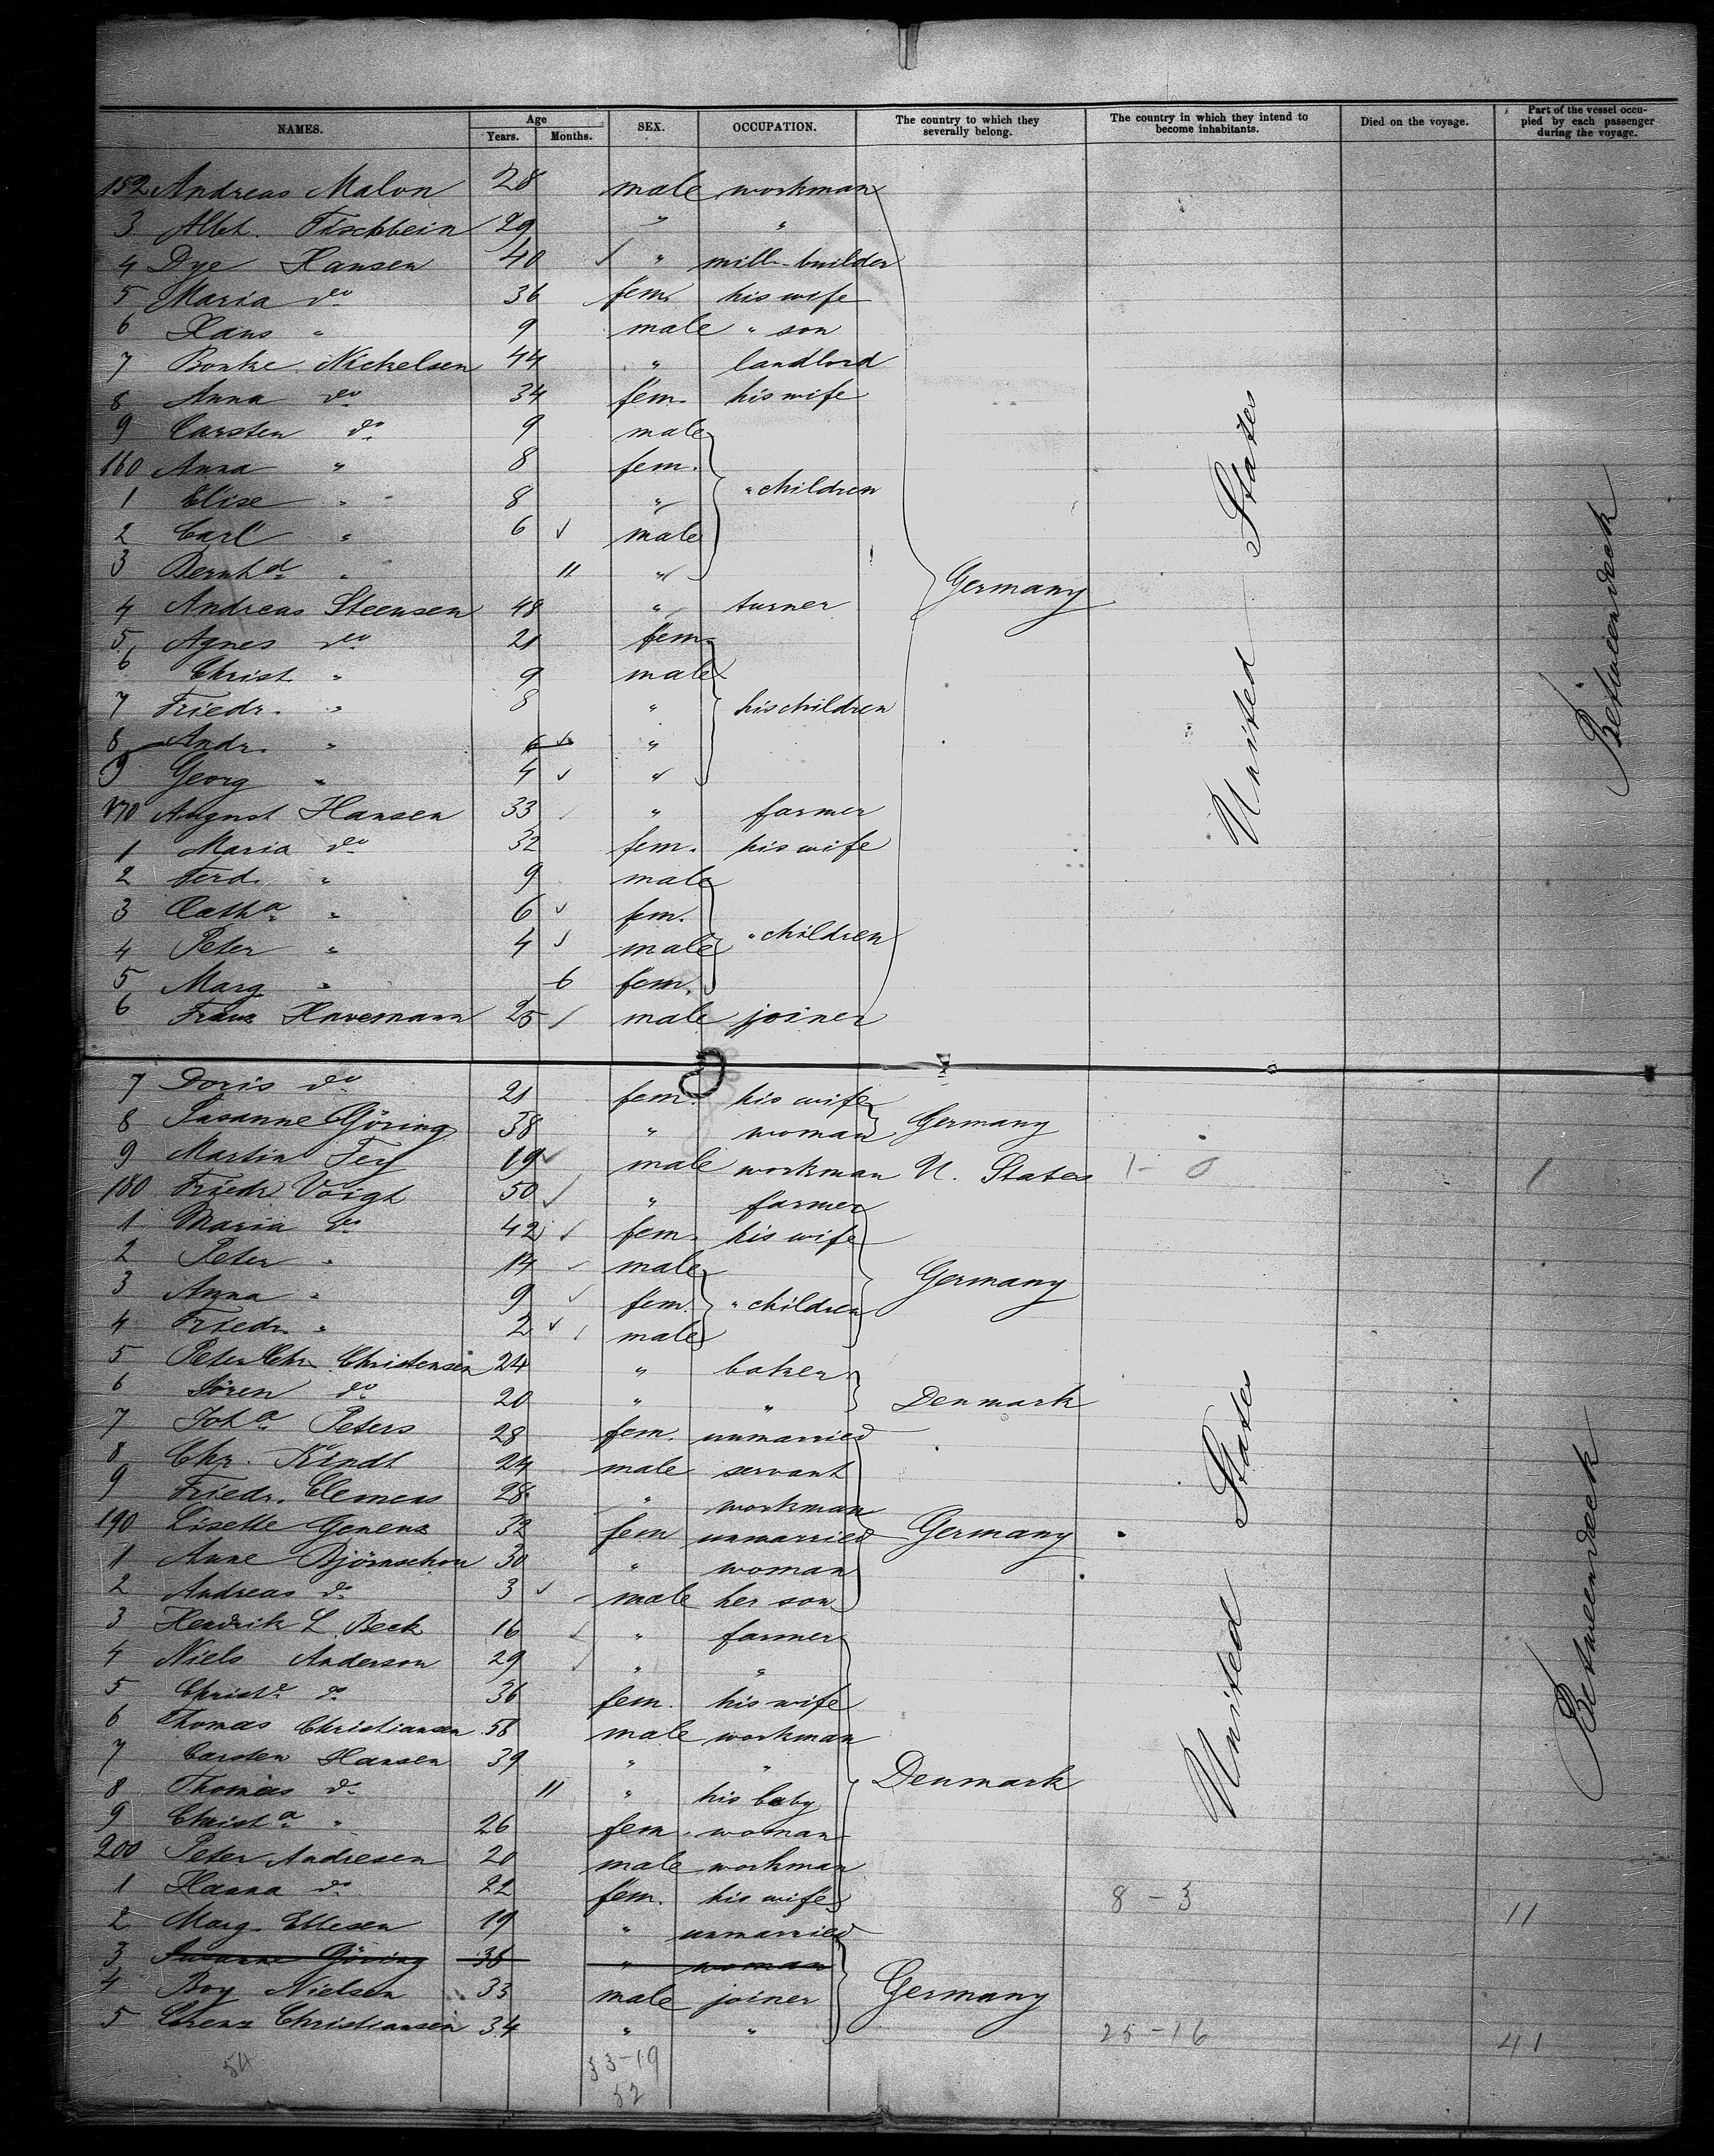 NAMES. Age Years. Months. SEX. OCCUPATION. The country to which they severally belong. The country in which they intend to become inhabitants. Died on the voyage. Part of the vessel occupied by each passenger during the voyage.
152 Andreas Malon 28 male workman
3 Albt. Fischbein 29 " "
4 Dye Hansen 40 " mill-builder
5 Maria do 36 fem. his wife
6 Hans " 9 male " son
7 Bonke Nickelsen 44 " landlord
8 Anna do 34 fem. his wife
9 Carsten do 9 male
160 Anna " 8 fem.
1 Elise " 8 " " children
2 Carl " 6 male
3 Bernhd " 11 "
Germany
United States
Betweendeck
4 Andreas Steensen 48 " turner
5 Agnes do 21 fem.
6 Christ. " 9 male
7 Friedr. " 8 " his children
8 Andr. " 6 "
9 Georg " 4 "
170 August Hansen 33 " farmer
1 Maria do 32 fem. his wife
2 Ferd. " 9 male
3 Catha " 6 fem.
4 Peter " 4 male " children
5 Marg " 6 fem.
6 Franz Havemann 25 male joiner
7 Doris do 21 fem. his wife
8 Susanne Göring 38 " woman Germany
9 Martin 19 male workman U. States 1 - 0 1
180 Friedr Voigt 50 " farmer
1 Maria do 42 fem. his wife
2 Peter " 14 male
3 Anna " 9 fem. " children Germany
4 Friedr. " 2 male
5 Peter Chr. Christensen 24 " baker
6 Sören do 20 " " Denmark
7 Joha Peters 28 fem. unmarried
8 Chr. Kindt 24 male servant
9 Friedr. Clemens 28 " workman
190 Lisette Genenz 32 fem unmarried Germany
1 Anne Björnschon 30 " woman
2 Andreas do 3 male her son
United States
Betweendeck
3 Hendrik L. Beck 16 " farmer
4 Niels Anderson 29 " "
5 Christe do 36 fem. his wife
6 Thomas Christiansen 58 male workman
7 Carsten Hansen 39 " "
8 Thomas do 11 " his baby Denmark
9 Christa " 26 fem. woman
200 Peter Andresen 20 male workman
1 Hanna do 22 fem. his wife 8 - 3 11
2 Marg. Ebbesen 19 " unmarried
3 Susanne Göring 38 " woman
4 Boy Nielsen 33 male joiner Germany
5 Lorenz Christiansen 34 " " 25 - 16 41
54 33-19
52